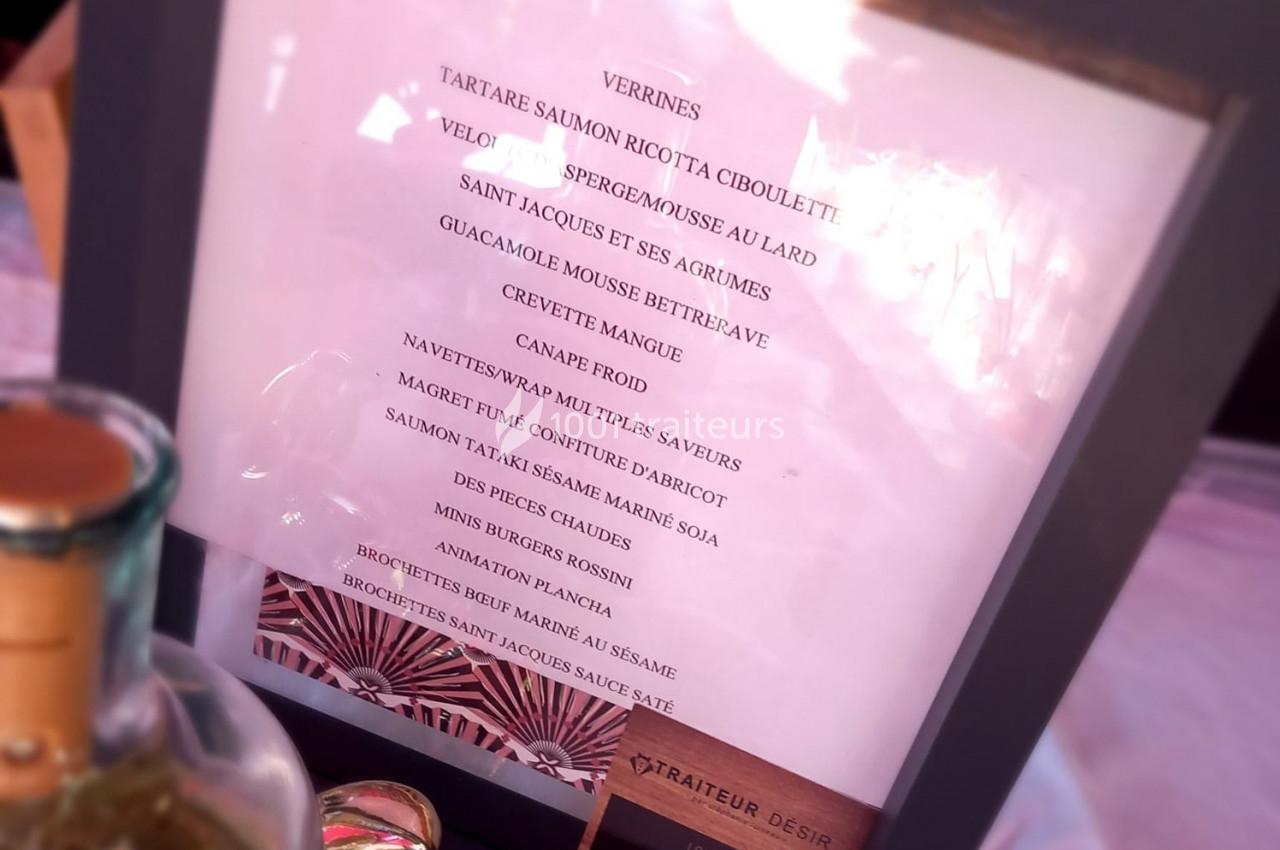 VERRINES
TARTARE SAUMON RICOTTA CIBOULETTE
VELOUTE D'ASPERGE/MOUSSE AU LARD
SAINT JACQUES ET SES AGRUMES
GUACAMOLE MOUSSE BETTRERAVE
CREVETTE MANGUE
CANAPE FROID
NAVETTES/WRAP MULTIPLES SAVEURS
MAGRET FUMÉ CONFITURE D'ABRICOT
SAUMON TATAKI SÉSAME MARINÉ SOJA
DES PIECES CHAUDES
MINIS BURGERS ROSSINI
ANIMATION PLANCHA
BROCHETTES BŒUF MARINÉ AU SÉSAME
BROCHETTES SAINT JACQUES SAUCE SATÉ
TRAITEUR DÉSIR
1001 traiteurs